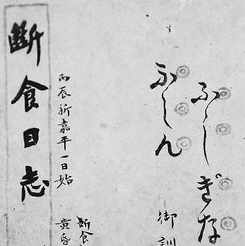 ふしぎな
ふしん
御訓
斷食
黄昏
丙辰新嘉平一日始
斷食日志